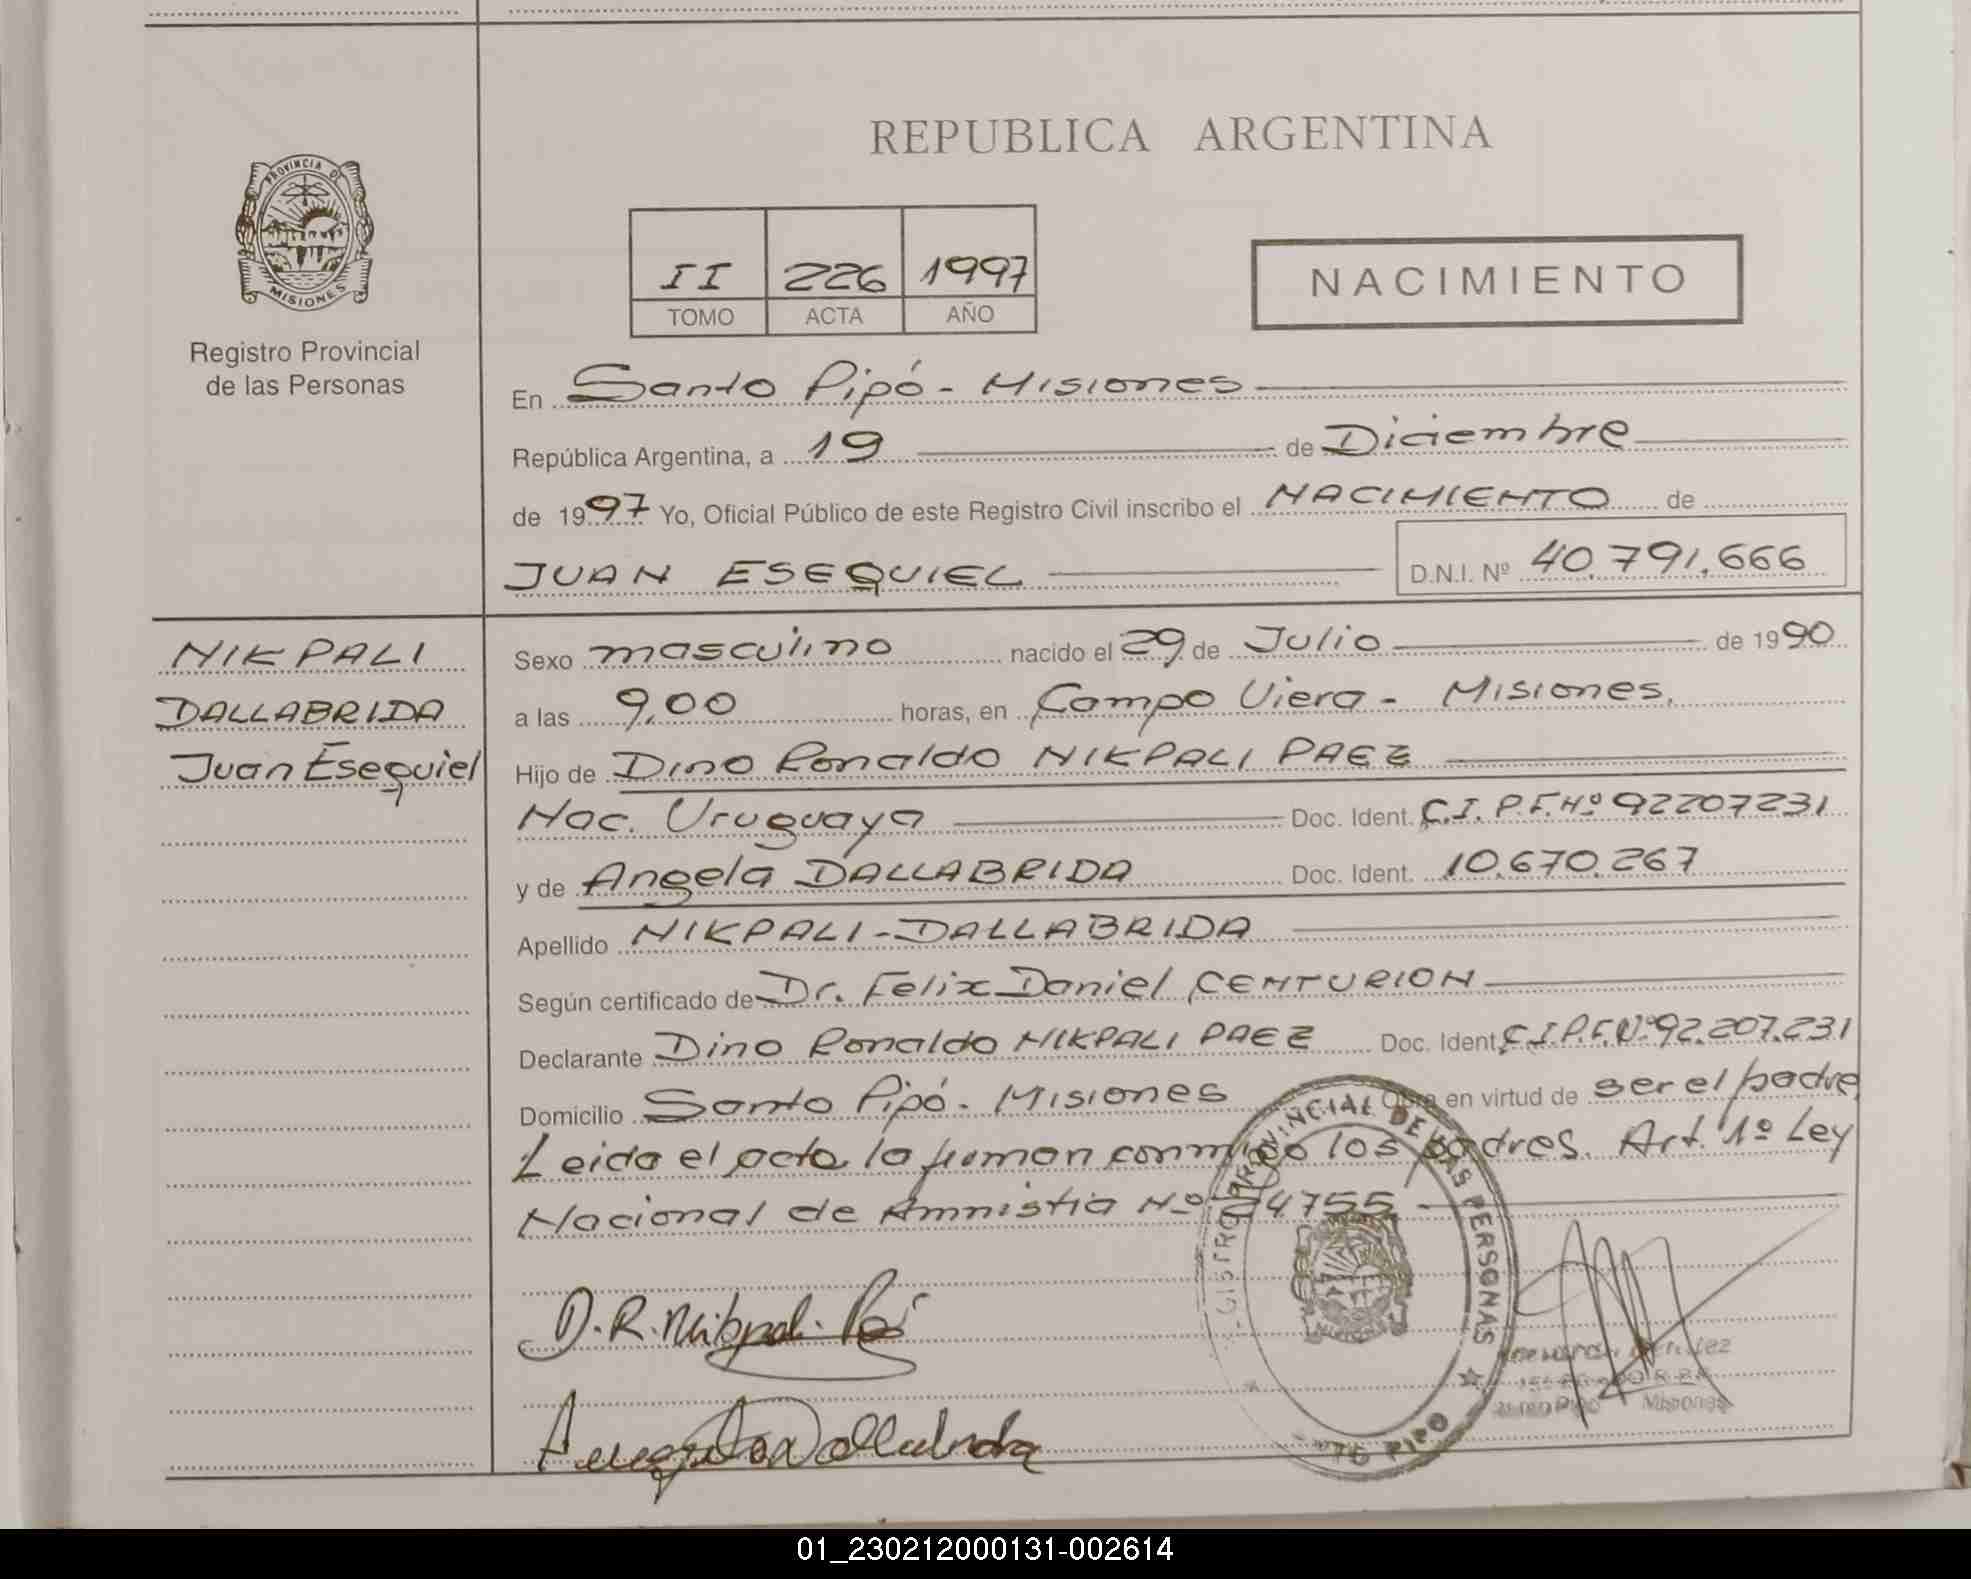 REPUBLICA ARGENTINA
PROVINCIA DE
MISIONES
Registro Provincial
de las Personas
II 226 1997
TOMO ACTA AÑO
NACIMIENTO
En Santo Pipó - Misiones
República Argentina, a 19 de Diciembre
de 1997 Yo, Oficial Público de este Registro Civil inscribo el NACIMIENTO de
JUAN ESEQUIEL D.N.I. Nº 40.791.666
NIKPALI
DALLABRIDA
Juan Esequiel
Sexo masculino nacido el 29 de Julio de 1990
a las 9,00 horas, en Campo Viera - Misiones.
Hijo de Dino Ronaldo NIKPALI PAEZ
Nac. Uruguaya Doc. Ident. C.I. P.F. Nº 92207231
y de Angela DALLABRIDA Doc. Ident. 10.670.267
Apellido NIKPALI-DALLABRIDA
Según certificado de Dr. Felix Daniel CENTURION
Declarante Dino Ronaldo NIKPALI PAEZ Doc. Ident. C.I.P.F. Nº 92.207.231
Domicilio Santo Pipó - Misiones Obra en virtud de ser el padre
Leida el acta la firman conmigo los padres. Art. 1º Ley
Nacional de Amnistia Nº 24755
PROVINCIAL DE LAS PERSONAS
D.R. Nikpali Paéz
Angela Dallabrida
Misiones
01_230212000131-002614